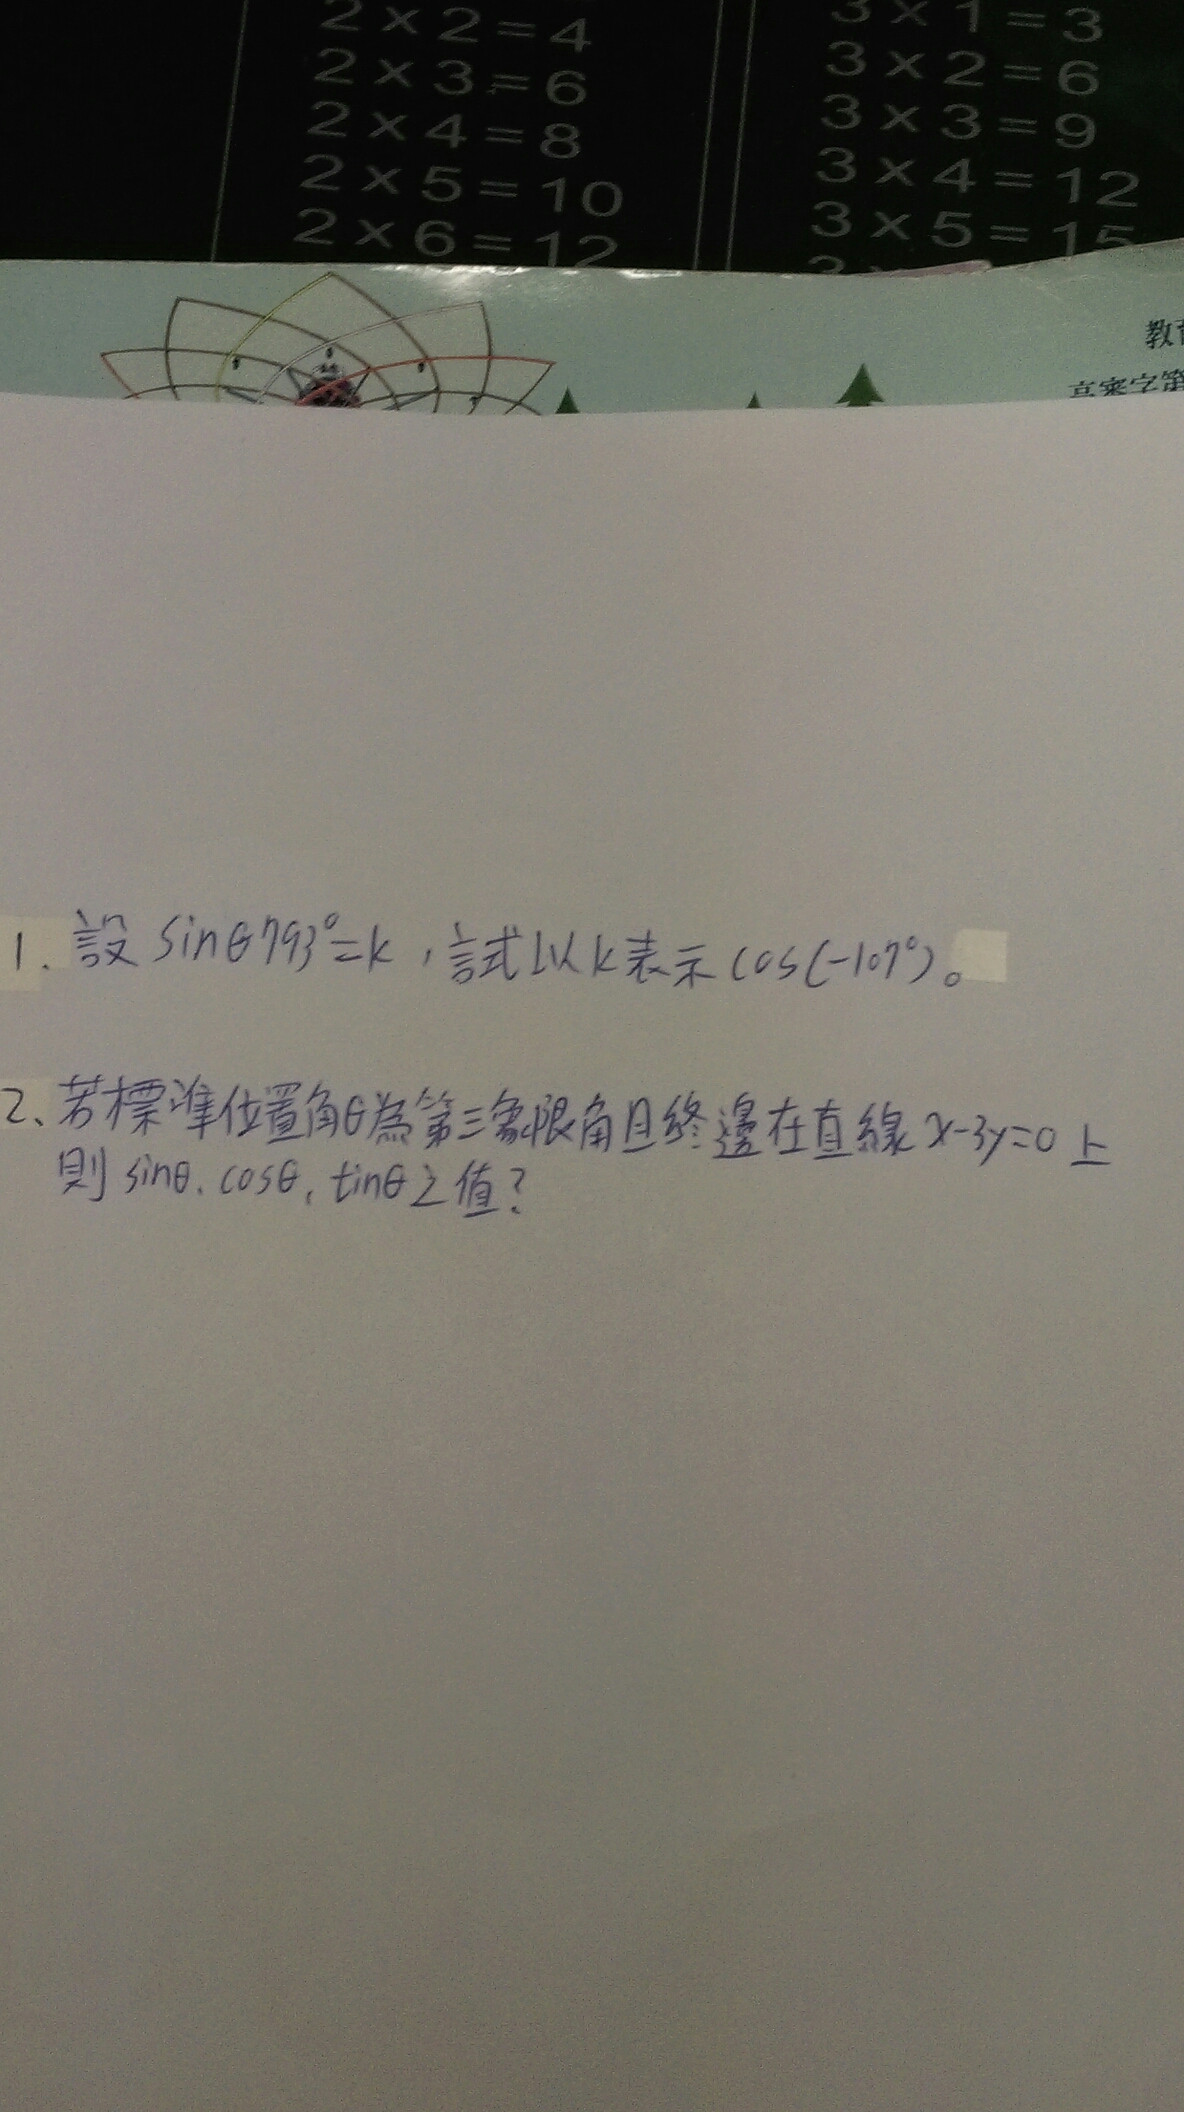 2 × 2 = 4
2 × 3 = 6
2 × 4 = 8
2 × 5 = 10
2 × 6 = 12
3 × 1 = 3
3 × 2 = 6
3 × 3 = 9
3 × 4 = 12
3 × 5 = 15
教育
高案字第
1. 設 sinθ793°=k，試以k表示cos(-107°)。
2、若標準位置角θ為第三象限角且終邊在直線x-3y=0上
則 sinθ、cosθ、tinθ之值？